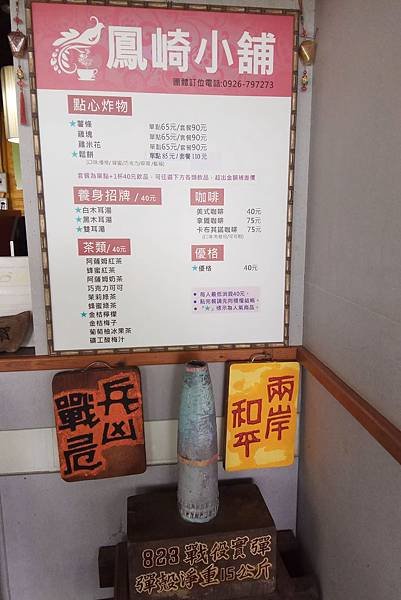 鳳崎小舖
團體訂位電話:0926-797273
點心炸物
★薯條 單點65元/套餐90元
雞塊 單點65元/套餐90元
雞米花 單點65元/套餐90元
★鬆餅 單點 85 元 / 套餐 110 元
套餐為單點+1杯40元飲品,可任選下方各類飲品,超出金額補差價
養身招牌 / 40元
★白木耳湯
★黑木耳湯
★雙耳湯
咖啡
美式咖啡 40元
拿鐵咖啡 75元
卡布其諾咖啡 75元
茶類/ 40元
阿薩姆紅茶
蜂蜜紅茶
阿薩姆奶茶
巧克力可可
茉莉綠茶
蜂蜜綠茶
★金桔檸檬
金桔梅子
葡萄柚冰果茶
礦工酸梅汁
優格
★優格 40元
每人最低消費40元。
點所餐請先向櫃檯結帳。
"★"標示為人氣商品。
兵凶
戰危
兩岸
和平
823戰役實彈
彈殼淨重15公斤